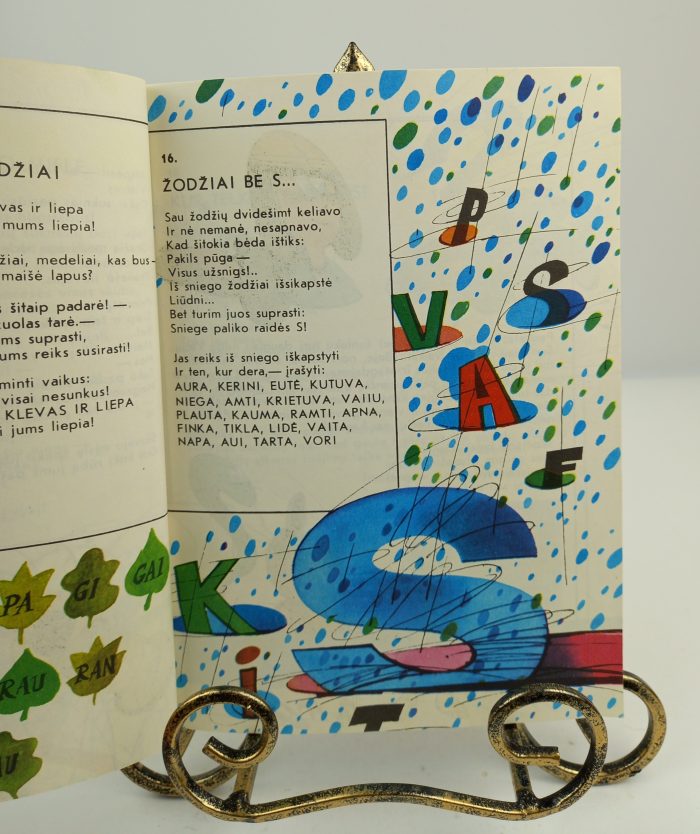 DŽIAI
vas ir liepa
mums liepia!
žiai, medeliai, kas bus—
maišė lapus?
s šitaip padarė! —
uolas tarė.—
ms suprasti,
ums reiks susirasti!
minti vaikus:
visai nesunkus!
KLEVAS IR LIEPA
i jums liepia!
PA
GI
GAI
RAU
RAN
AU
16.
ŽODŽIAI BE S...
Sau žodžių dvidešimt keliavo
Ir nė nemanė, nesapnavo,
Kad šitokia bėda ištiks:
Pakils pūga —
Visus užsnigs!..
Iš sniego žodžiai išsikapstė
Liūdni...
Bet turim juos suprasti:
Sniege paliko raidės S!
Jas reiks iš sniego iškapstyti
Ir ten, kur dera,— įrašyti:
AURA, KERINI, EUTĖ, KUTUVA,
NIEGA, AMTI, KRIETUVA, VAIIU,
PLAUTA, KAUMA, RAMTI, APNA,
FINKA, TIKLA, LIDĖ, VAITA,
NAPA, AUI, TARTA, VORI
P
S
V
A
F
S
K
i
T